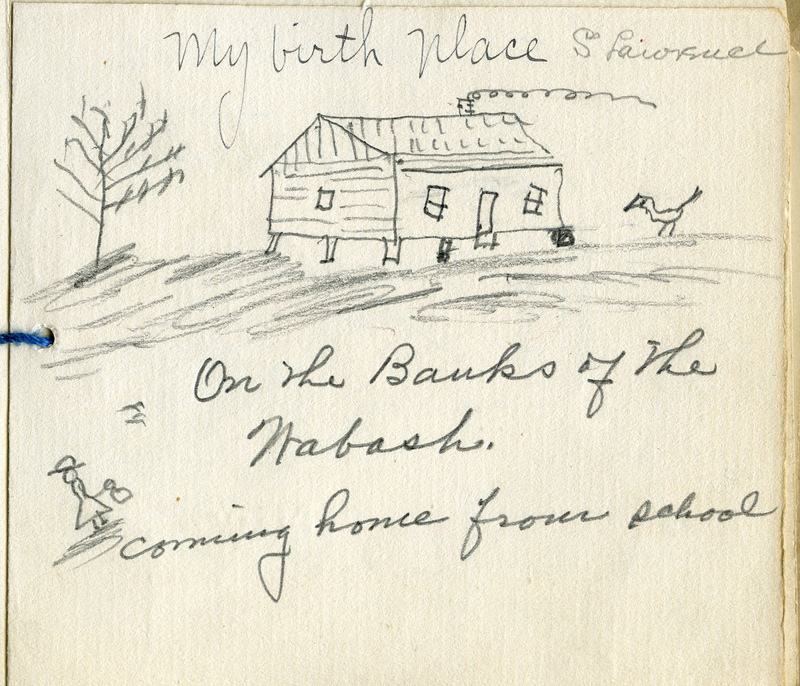 My birth place S Lawrence
On the Banks of the
Wabash.
coming home from school